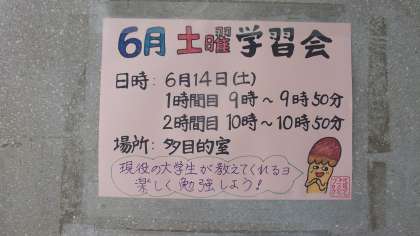 6月 土曜 学習会
日時: 6月14日(土)
1時間目 9時～9時50分
2時間目 10時～10時50分
場所: 多目的室
現役の大学生が教えてくれるヨ
楽しく勉強しよう!